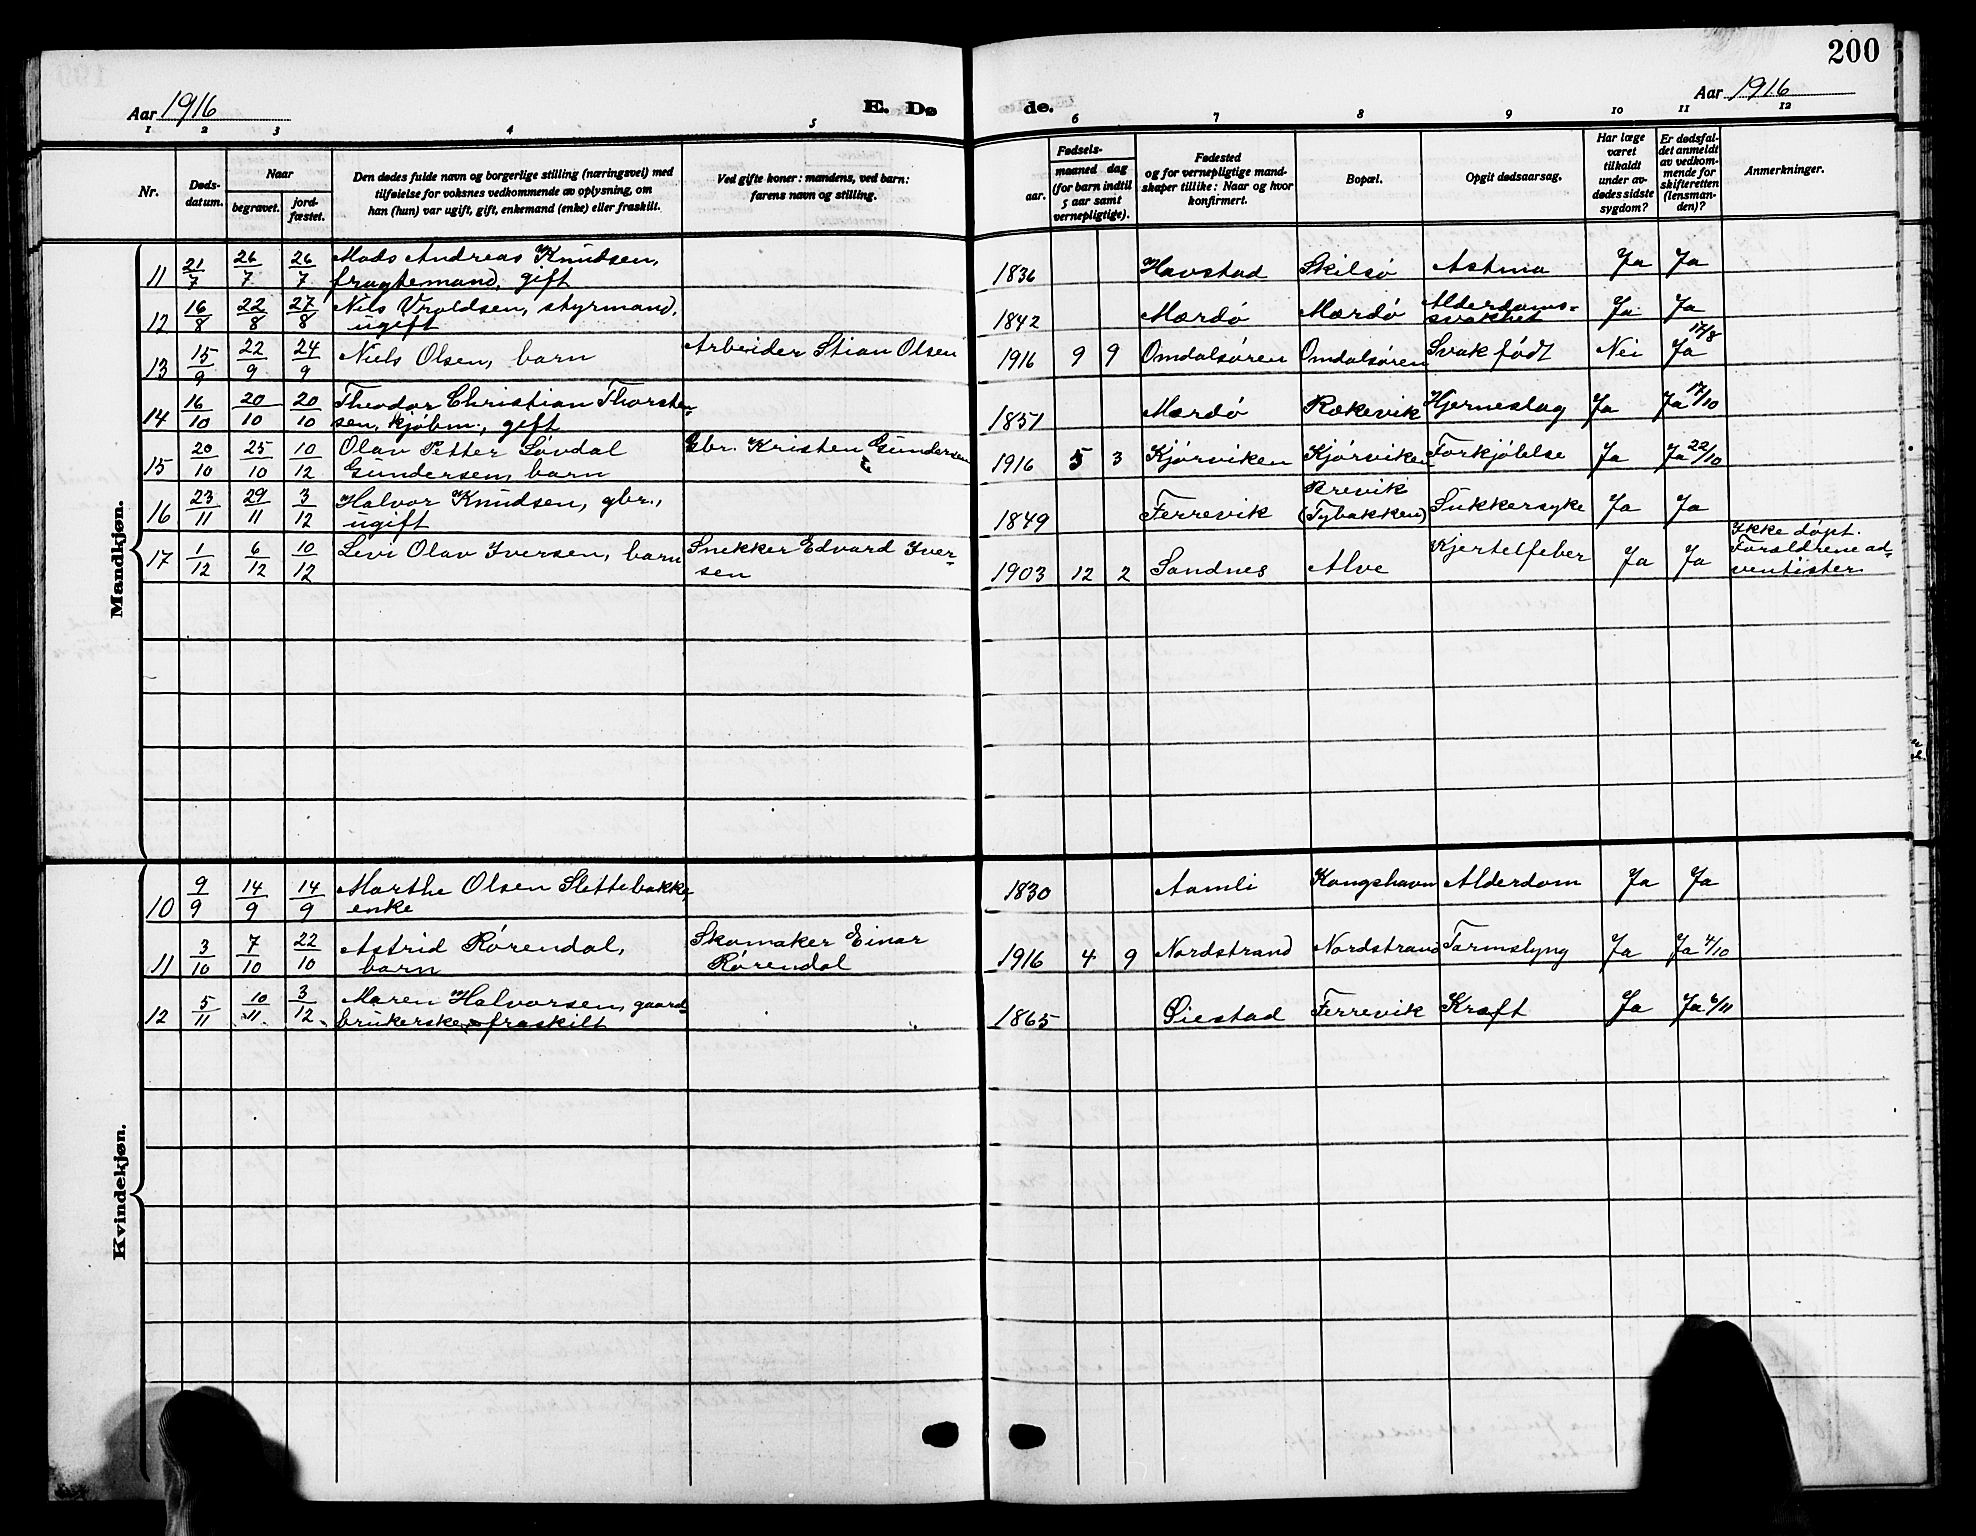 200
Aar 1916
E. Dø
de.
Aar 1916
1 2 3 4 5
6 7 8 9 10 11 12
Nr.
Døds-
datum.
Naar
begravet.
jord-
fæstet.
Den dødes fulde navn og borgerlige stilling (næringsvei) med
tilføielse for voksnes vedkommende av oplysning, om
han (hun) var ugift, gift, enkemand (enke) eller fraskilt.
Ved gifte koner: mandens, ved barn:
farens navn og stilling.
Fødsels-
aar. maaned dag
(for barn indtil
5 aar samt
vernepligtige).
Fødested
og for vernepligtige mand-
skaper tillike: Naar og hvor
konfirmert.
Bopæl.
Opgit dødsaarsag.
Har læge
været
tilkaldt
under av-
dødes sidste
sygdom?
Er dødsfal-
det anmeldt
av vedkom-
mende for
skifteretten
(lensman-
den)?
Anmerkninger.
Mandkjøn.
11 21/7 26/7 26/7 Mads Andreas Knudsen,
fragtemand, gift
1836 Havstad Skilsø Astma Ja Ja
12 16/8 22/8 27/8 Nils Vroldsen, styrmand,
ugift
1842 Mærdø Mærdø Alderdoms-
svakhet Ja Ja
13 15/9 22/9 24/9 Niels Olsen, barn Arbeider Stian Olsen
1916 9 9 Omdalsøren Omdalsøren Svak født Nei Ja 17/8
14 16/10 20/10 20/10 Theodor Christian Thorsten-
sen, kjøbm., gift
1851 Mærdø Rækevik Hjerneslag Ja Ja 17/10
15 20/10 25/10 10/12 Olav Petter Løvdal
Gundersen, barn
Gbr. Kristen Gundersen
1916 5 3 Kjørviken Kjørviken Forkjølelse Ja Ja 22/10
16 23/11 29/11 3/12 Halvor Knudsen, gbr.,
ugift
1849 Ferrevik Brevik
(Tybakken) Sukkersyke Ja Ja
17 1/12 6/12 10/12 Levi Olav Iversen, barn Snekker Edvard Iver-
sen
1903 12 2 Sandnes Alve Kjertelfeber Ja Ja Ikke døpt.
Forældrene ad-
ventister
Kvindekjøn.
10 9/9 14/9 14/9 Marthe Olsen Slettebakke,
enke
1830 Aamli Kongshavn Alderdom Ja Ja
11 3/10 7/10 22/10 Astrid Rørendal,
barn
Skomaker Einar
Rørendal
1916 4 9 Nordstrand Nordstrand Tarmslyng Ja Ja 4/10
12 5/11 10/11 3/12 Maren Halvorsen, gaard-
brukerske, fraskilt
1865 Øiestad Ferrevik Kræft Ja Ja 6/11